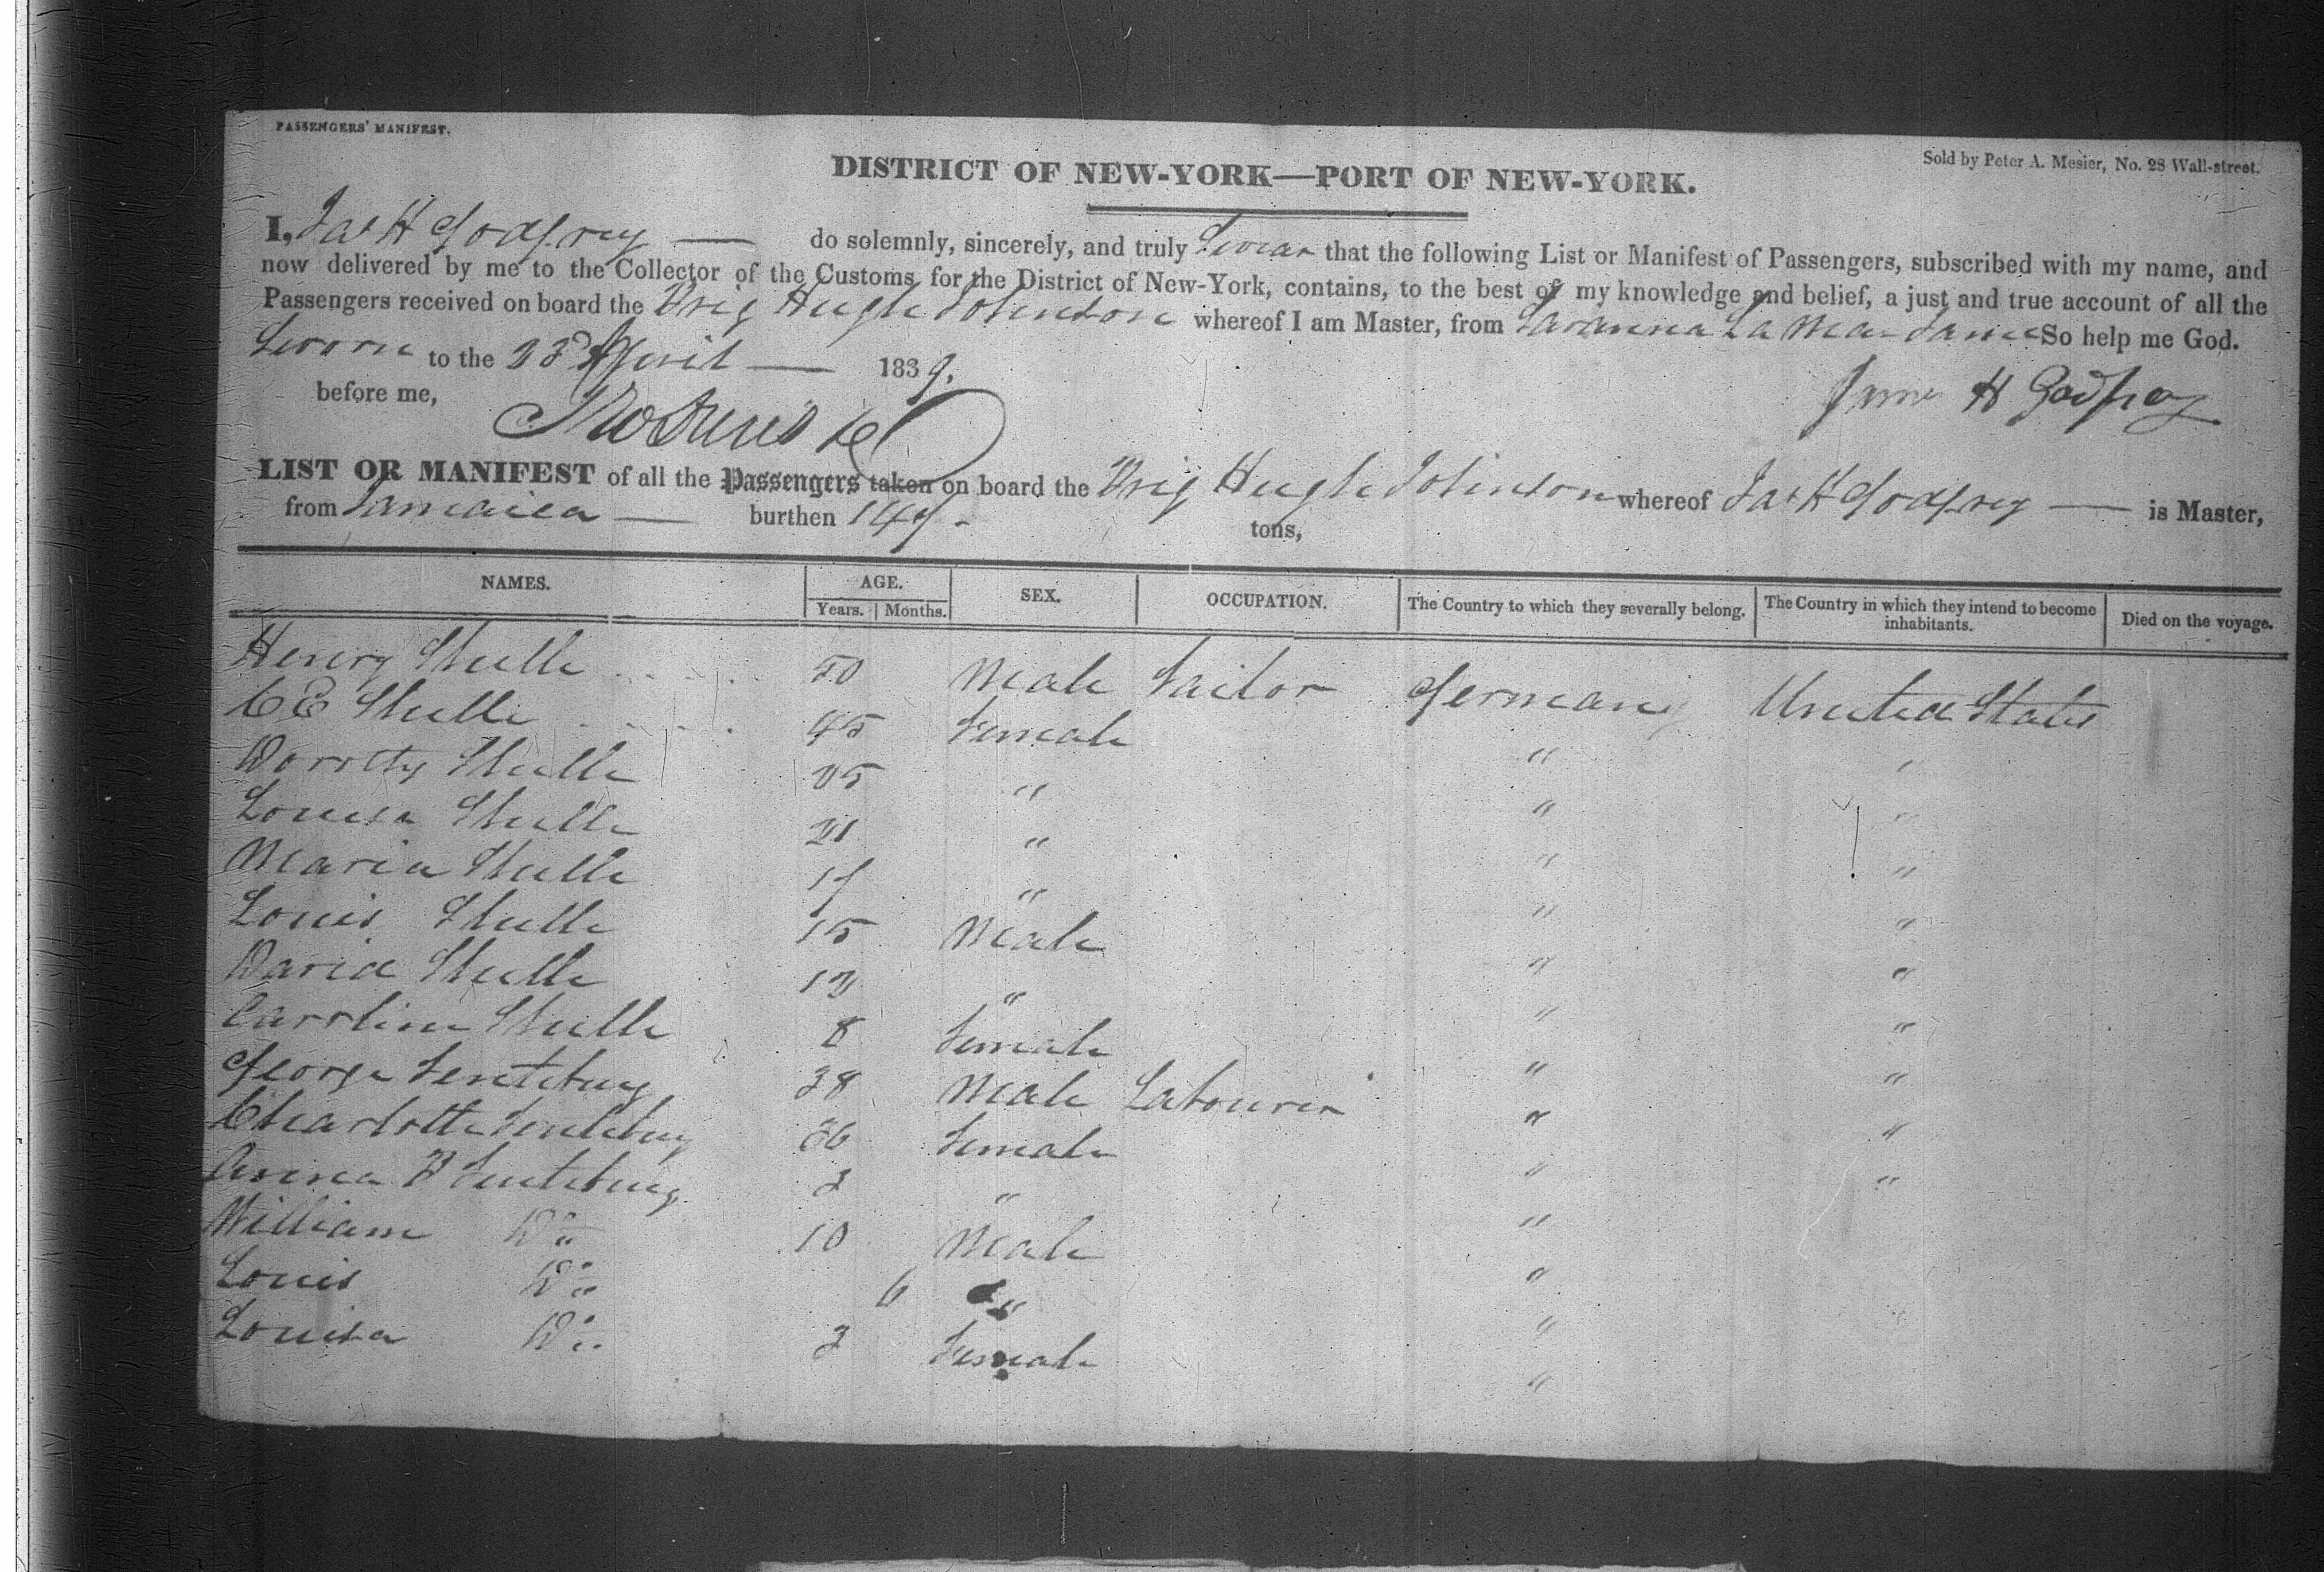 PASSENGERS' MANIFEST.
Sold by Peter A. Mesier, No. 28 Wall-street.
DISTRICT OF NEW-YORK—PORT OF NEW-YORK.
I, Jas H Godfrey — do solemnly, sincerely, and truly Swear that the following List or Manifest of Passengers, subscribed with my name, and
now delivered by me to the Collector of the Customs for the District of New-York, contains, to the best of my knowledge and belief, a just and true account of all the
Passengers received on board the Brig Hugh Johnson whereof I am Master, from Savanna La Mar Jama So help me God.
Sworn to the 23d April — 1839.
before me,
James H Godfrey
LIST OR MANIFEST of all the Passengers taken on board the Brig Hugh Johnson whereof Jas H Godfrey — is Master,
from Jamaica — burthen 147 - tons,
NAMES. AGE. SEX. OCCUPATION. The Country to which they severally belong. The Country in which they intend to become inhabitants. Died on the voyage.
Years. Months.
Henry Stulle 50 Male Tailor Germany United States
C E Stulle 45 Female " "
Dorothy Stulle 25 " " "
Louisa Stulle 21 " " "
Maria Stulle 17 " " "
Louis Stulle 15 Male " "
David Stulle 12 " " "
Caroline Stulle 8 Female " "
George 38 Male Labourer " "
Charlotte 36 Female " "
Anna 3 " "
William Do 10 Male "
Louis Do 6 " "
Louisa Do 3 Female "